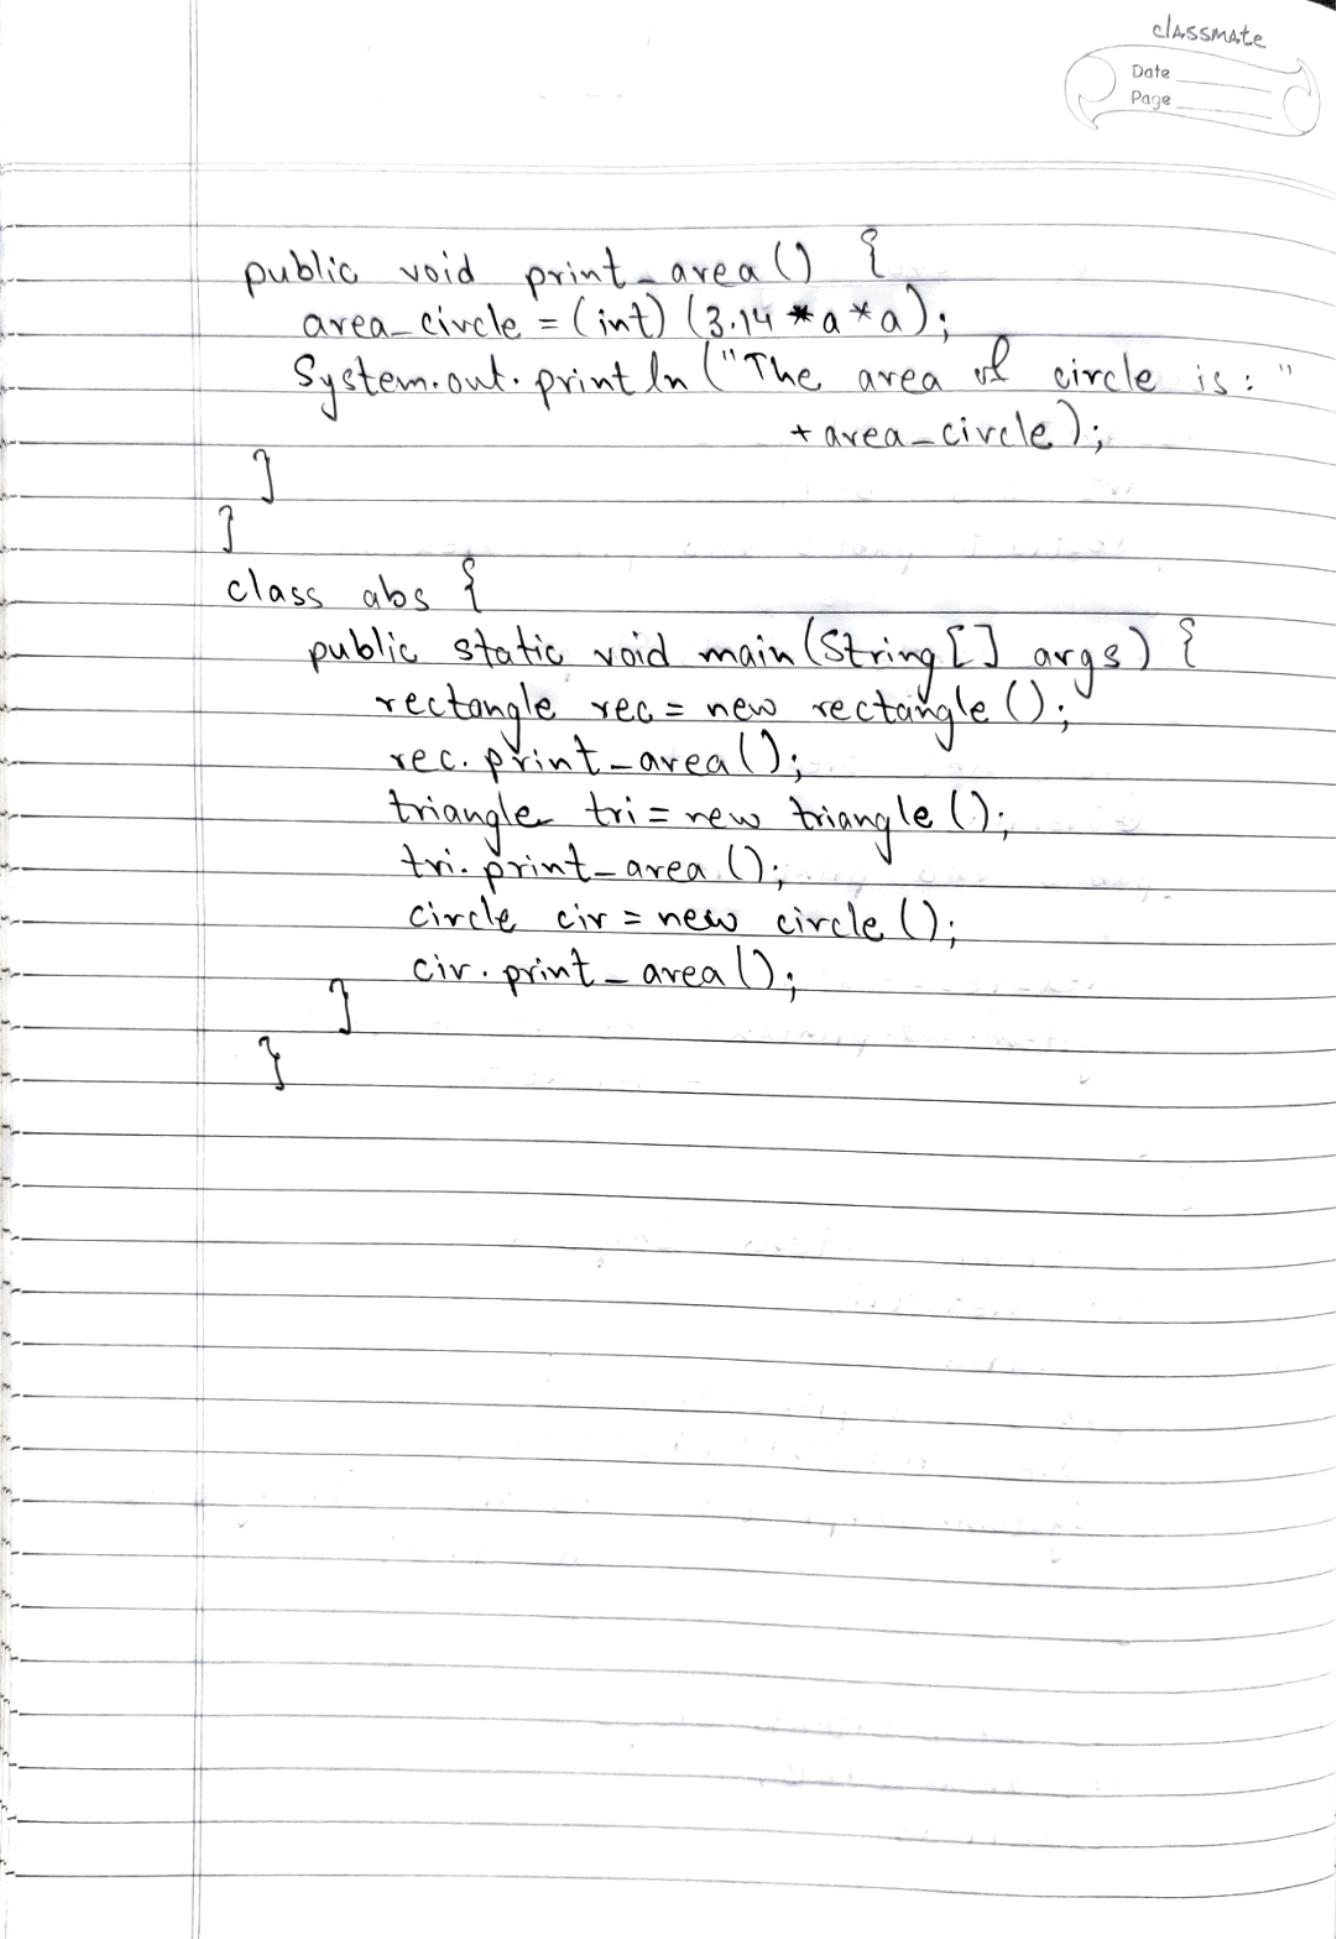 classmate
Date
Page
public void print_area() {
area_circle = (int) (3.14 *a*a);
System.out.println("The area of circle is: "
+ area_circle);
}
}
class abs {
public static void main(String[] args) {
rectangle rec = new rectangle();
rec.print_area();
triangle tri = new triangle();
tri.print_area();
circle cir = new circle();
cir.print_area();
}
}